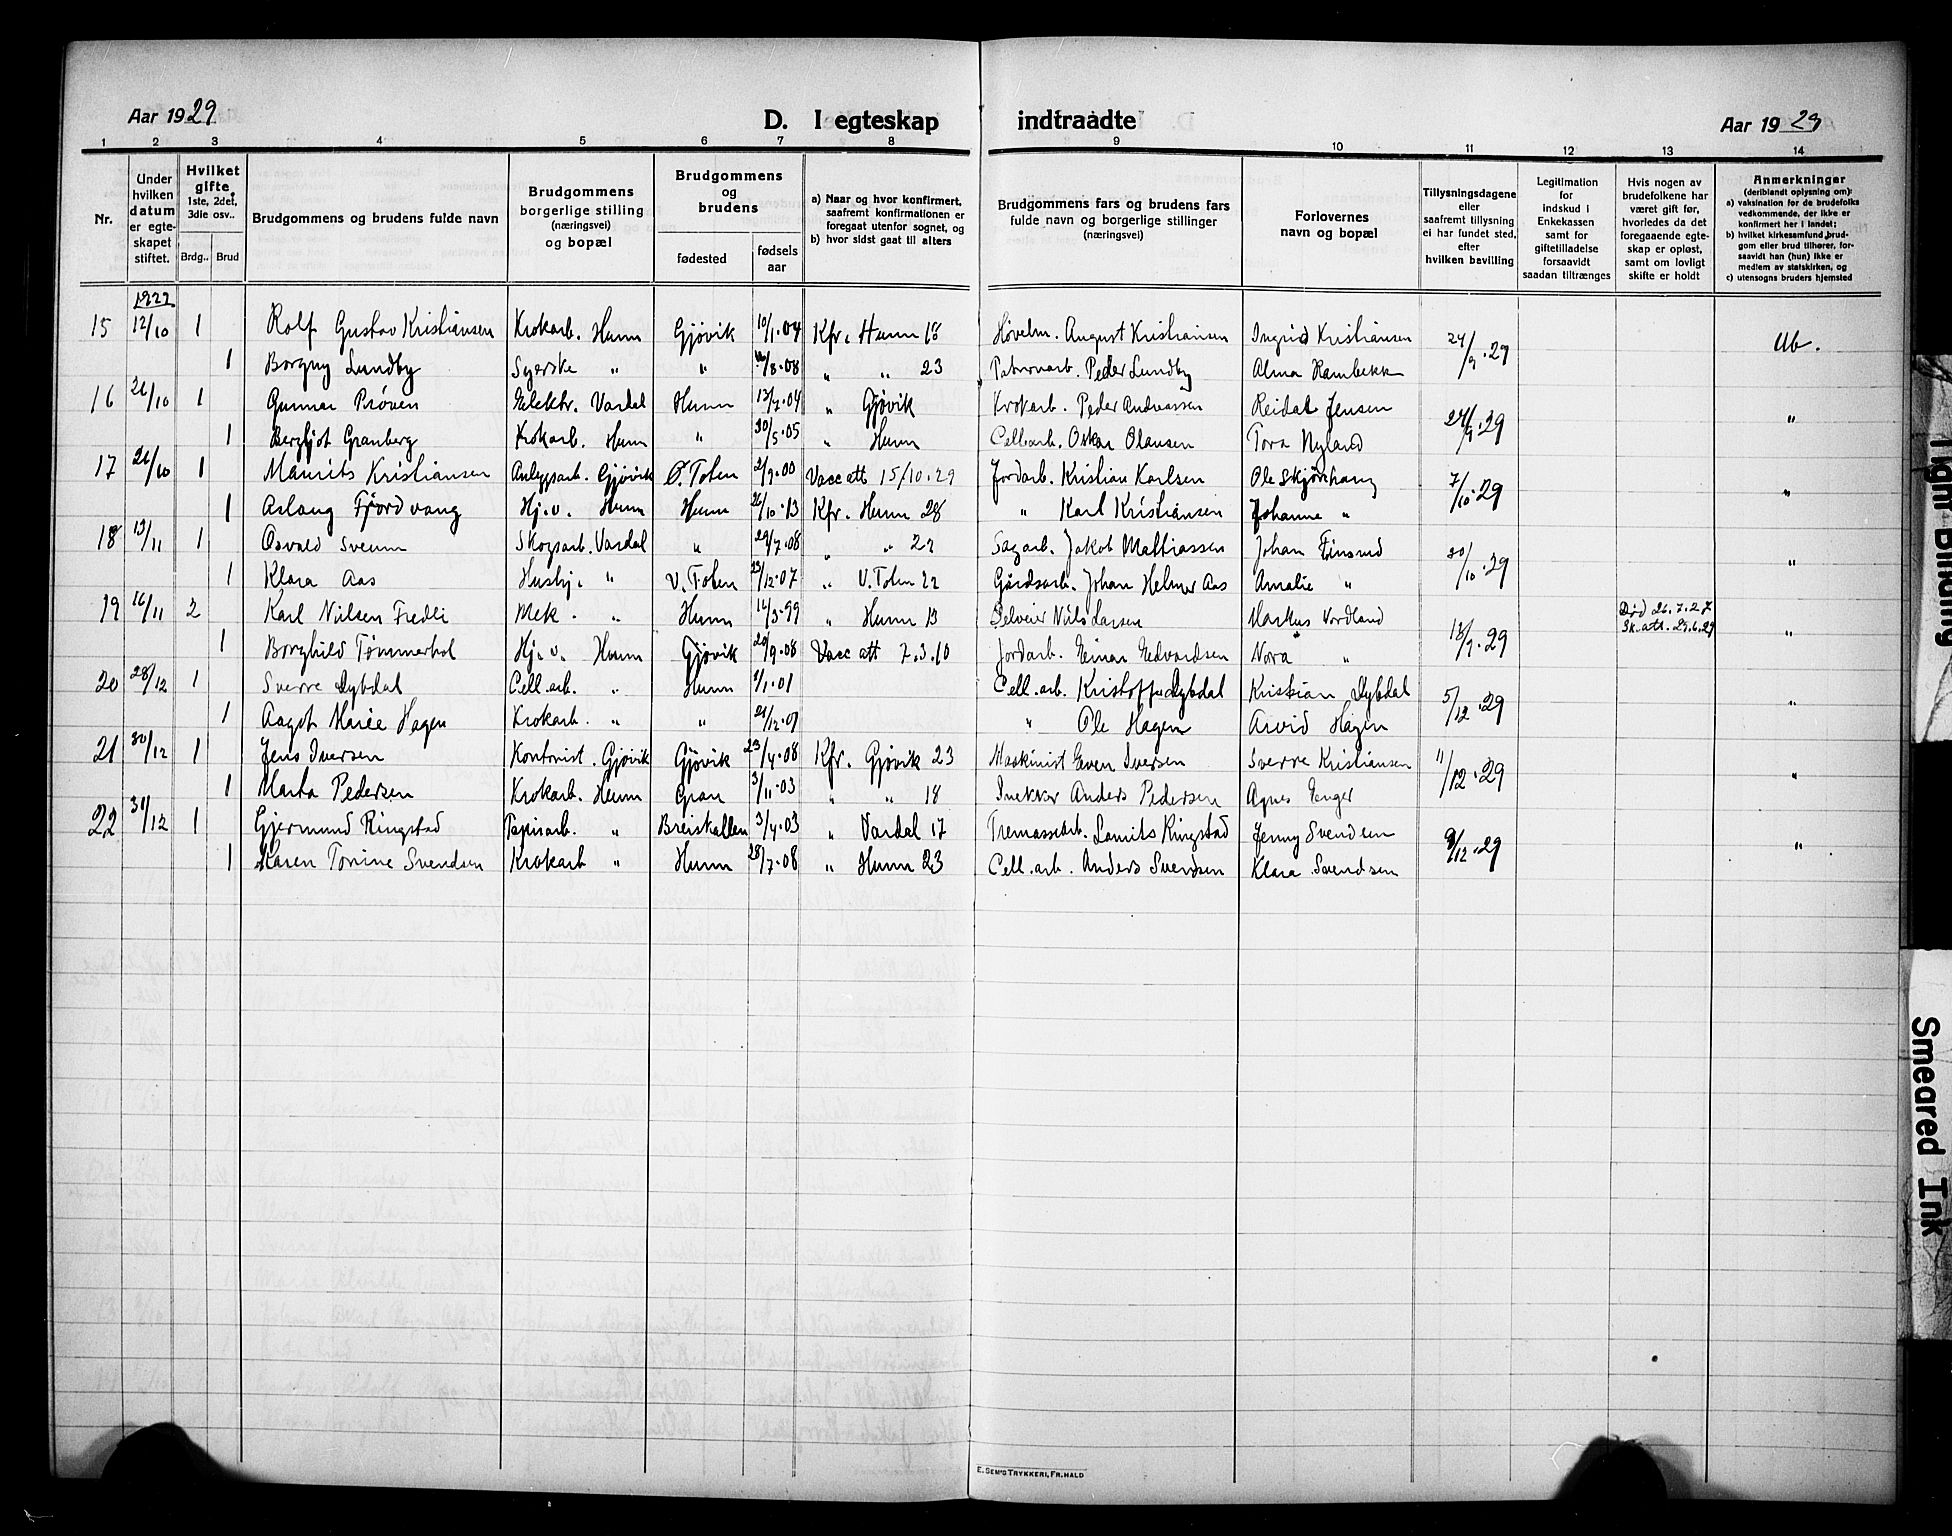 Aar 1929
D. I egteskap indtraadte
Aar 1929
1 2 3 4 5 6 7 8 9 10 11 12 13 14
Nr.
Under hvilken datum er egteskapet stiftet.
Hvilket gifte 1ste, 2det, 3die osv..
Brdg.. Brud
Brudgommens og brudens fulde navn
Brudgommens borgerlige stilling (næringsvei) og bopæl
Brudgommens og brudens
fødested
fødsels aar
a) Naar og hvor konfirmert, saafremt konfirmationen er foregaat utenfor sognet, og
b) hvor sidst gaat til alters
Brudgommens fars og brudens fars fulde navn og borgerlige stillinger (næringsvei)
Forlovernes navn og bopæl
Tillysningsdagene eller saafremt tillysning ei har fundet sted, efter hvilken bavilling
Legitimation for indskud i Enkekassen samt for giftetilladelse forsaavidt saadan tiltrænges
Hvis nogen av brudefolkene har været gift før, hvorledes da det foregaaende egteskap er opløst, samt om lovligt skifte er holdt
Anmerkninger (deriblandt oplysning om):
a) vaksination for de brudefolks vedkommende, der ikke er konfirmert her i landet;
b) hvilket kirkesamfund brudgom eller brud tilhører, forsaavidt han (hun) ikke er medlem av statskirken, og
c) utensogns bruders hjemsted
15 12/10 1 Rolf Gustav Kristiansen Krokarb. Hunn Gjøvik 10/1.04 Kfr. Hunn 18 Høvelm. August Kristiansen Ingrid Kristiansen 24/9.29 Ub.
1 Borgny Lundby Syerske " " /8.08 " " 23 Peder Lundby Alma Rambekk
16 26/10 1 Gunnar Prøven Elektr. Vardal Hunn 13/7.04 " Gjøvik Krokarb. Peder Andreassen Reidar Jensen 24/9.29 "
1 Bergljot Granberg Krokarb. Hunn " 30/5.05 " Hunn Cellearb. Oskar Olausen Tora Nyland
17 26/10 1 Maurits Kristiansen Anleggsarb. Gjøvik Ø. Toten 2/9.00 Vacc att 15/10.29 Jordarb. Kristian Karlsen Ole Skjørshang 7/10.29 "
1 Aslaug Fjordvang Hj.v. Hunn Hunn 26/10.13 Kfr. Hunn 28 " Karl Kristiansen Johanne "
18 13/11 1 Osvald Sveum Skogsarb. Vardal " 29/7.08 " " 22 Sagarb. Jakob Mathiassen Johan Einsrud 20/10.29 "
1 Klara Aas Husbj. " V. Toten 23/12.07 " V. Toten 22 Gårdsarb. Johan Helmer Aas Amalie "
19 16/11 2 Karl Nilsen Fredli Mek. " Hunn 16/3.99 " Hunn 13 Selveier Nils Larsen Markus Nordland 18/7.29 Død 26.7.27 Sk.att. 29.6.29 "
1 Borghild Tømmerhol Hj.v. Hunn Gjøvik 20/9.08 Vacc att 7.3.10 Jordarb. Einar Edvardsen Nora "
20 28/12 1 Sverre Dybdal Cell.arb. " Hunn 9/1.01 Cell.arb. Kristoffer Dybdal Kristian Dybdal 5/12.29 "
1 Aagot Marie Hagen Krokarb. " " 24/12.01 " Ole Hagen Arvid Hagen
21 30/12 1 Jens Iversen Kontorist. Gjøvik Gjøvik 23/4.08 Kfr. Gjøvik 23 Maskinist Even Iversen Sverre Kristiansen 11/12.29 "
1 Marta Pedersen Krokarb. Hunn Gran 3/11.03 " " 18 Snekker Anders Pedersen Agnes Enger
22 31/12 1 Gjermund Ringstad Papirarb. " Breiskallen 3/4.03 " Vardal 17 Tremassearb. Laurits Ringstad Jenny Svendsen 9/12.29 "
1 Karen Tomine Svendsen Krokarb " Hunn 28/7.08 " Hunn 23 Cell.arb. Anders Svendsen Klara Svendsen
E. Sem's Trykkeri, Fr.hald
Tight Binding
Smeared Ink